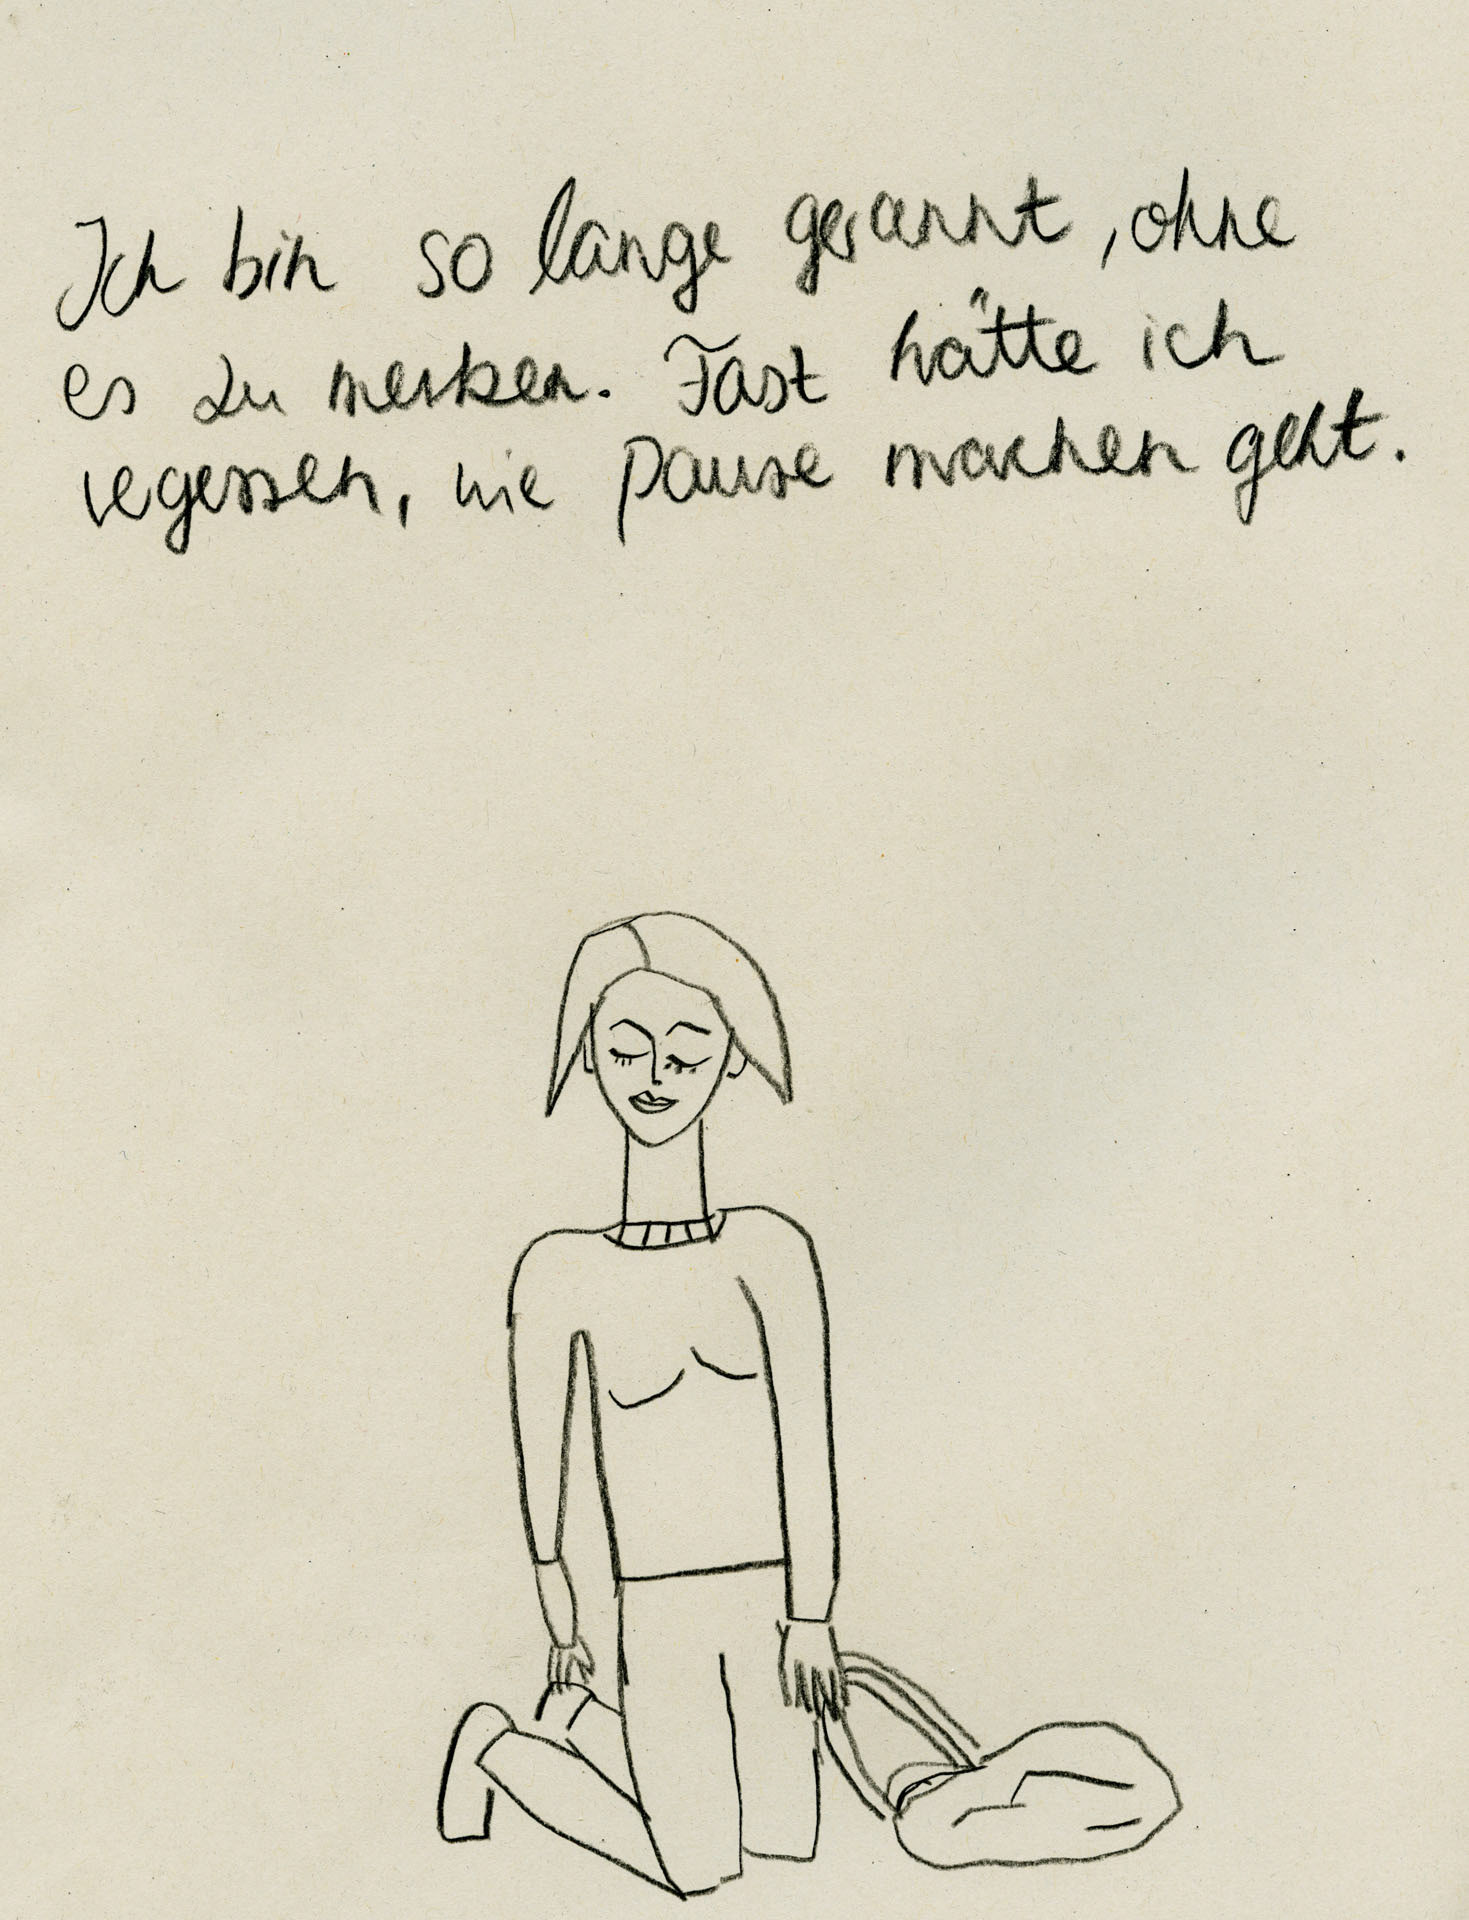 Ich bin so lange gerannt, ohne
es zu merken. Fast hätte ich
vegessen, wie Pause machen geht.